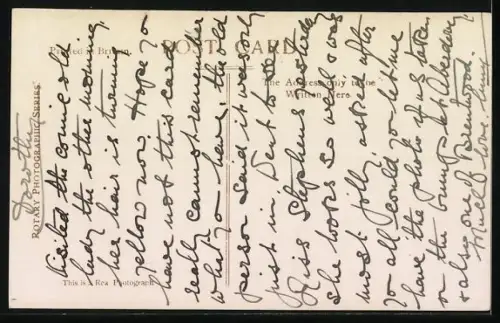 Printed in Britain
POST CARD
The Address only to be
Written Here
ROTARY PHOTOGRAPHIC SERIES
This is a Real Photograph
Dorothy
Visited the comic old
lady the other morning.
her hair is turning
yellow now. Hope you
have not this card
really cannot remember
what you have. the old
person said it was only
just in. Went to see
Miss Stephens yesterday
she looks so well & was
most jolly, asked after
you all. could you let me
have the photo that was taken
on the
& also one of Brentwood.
Much love